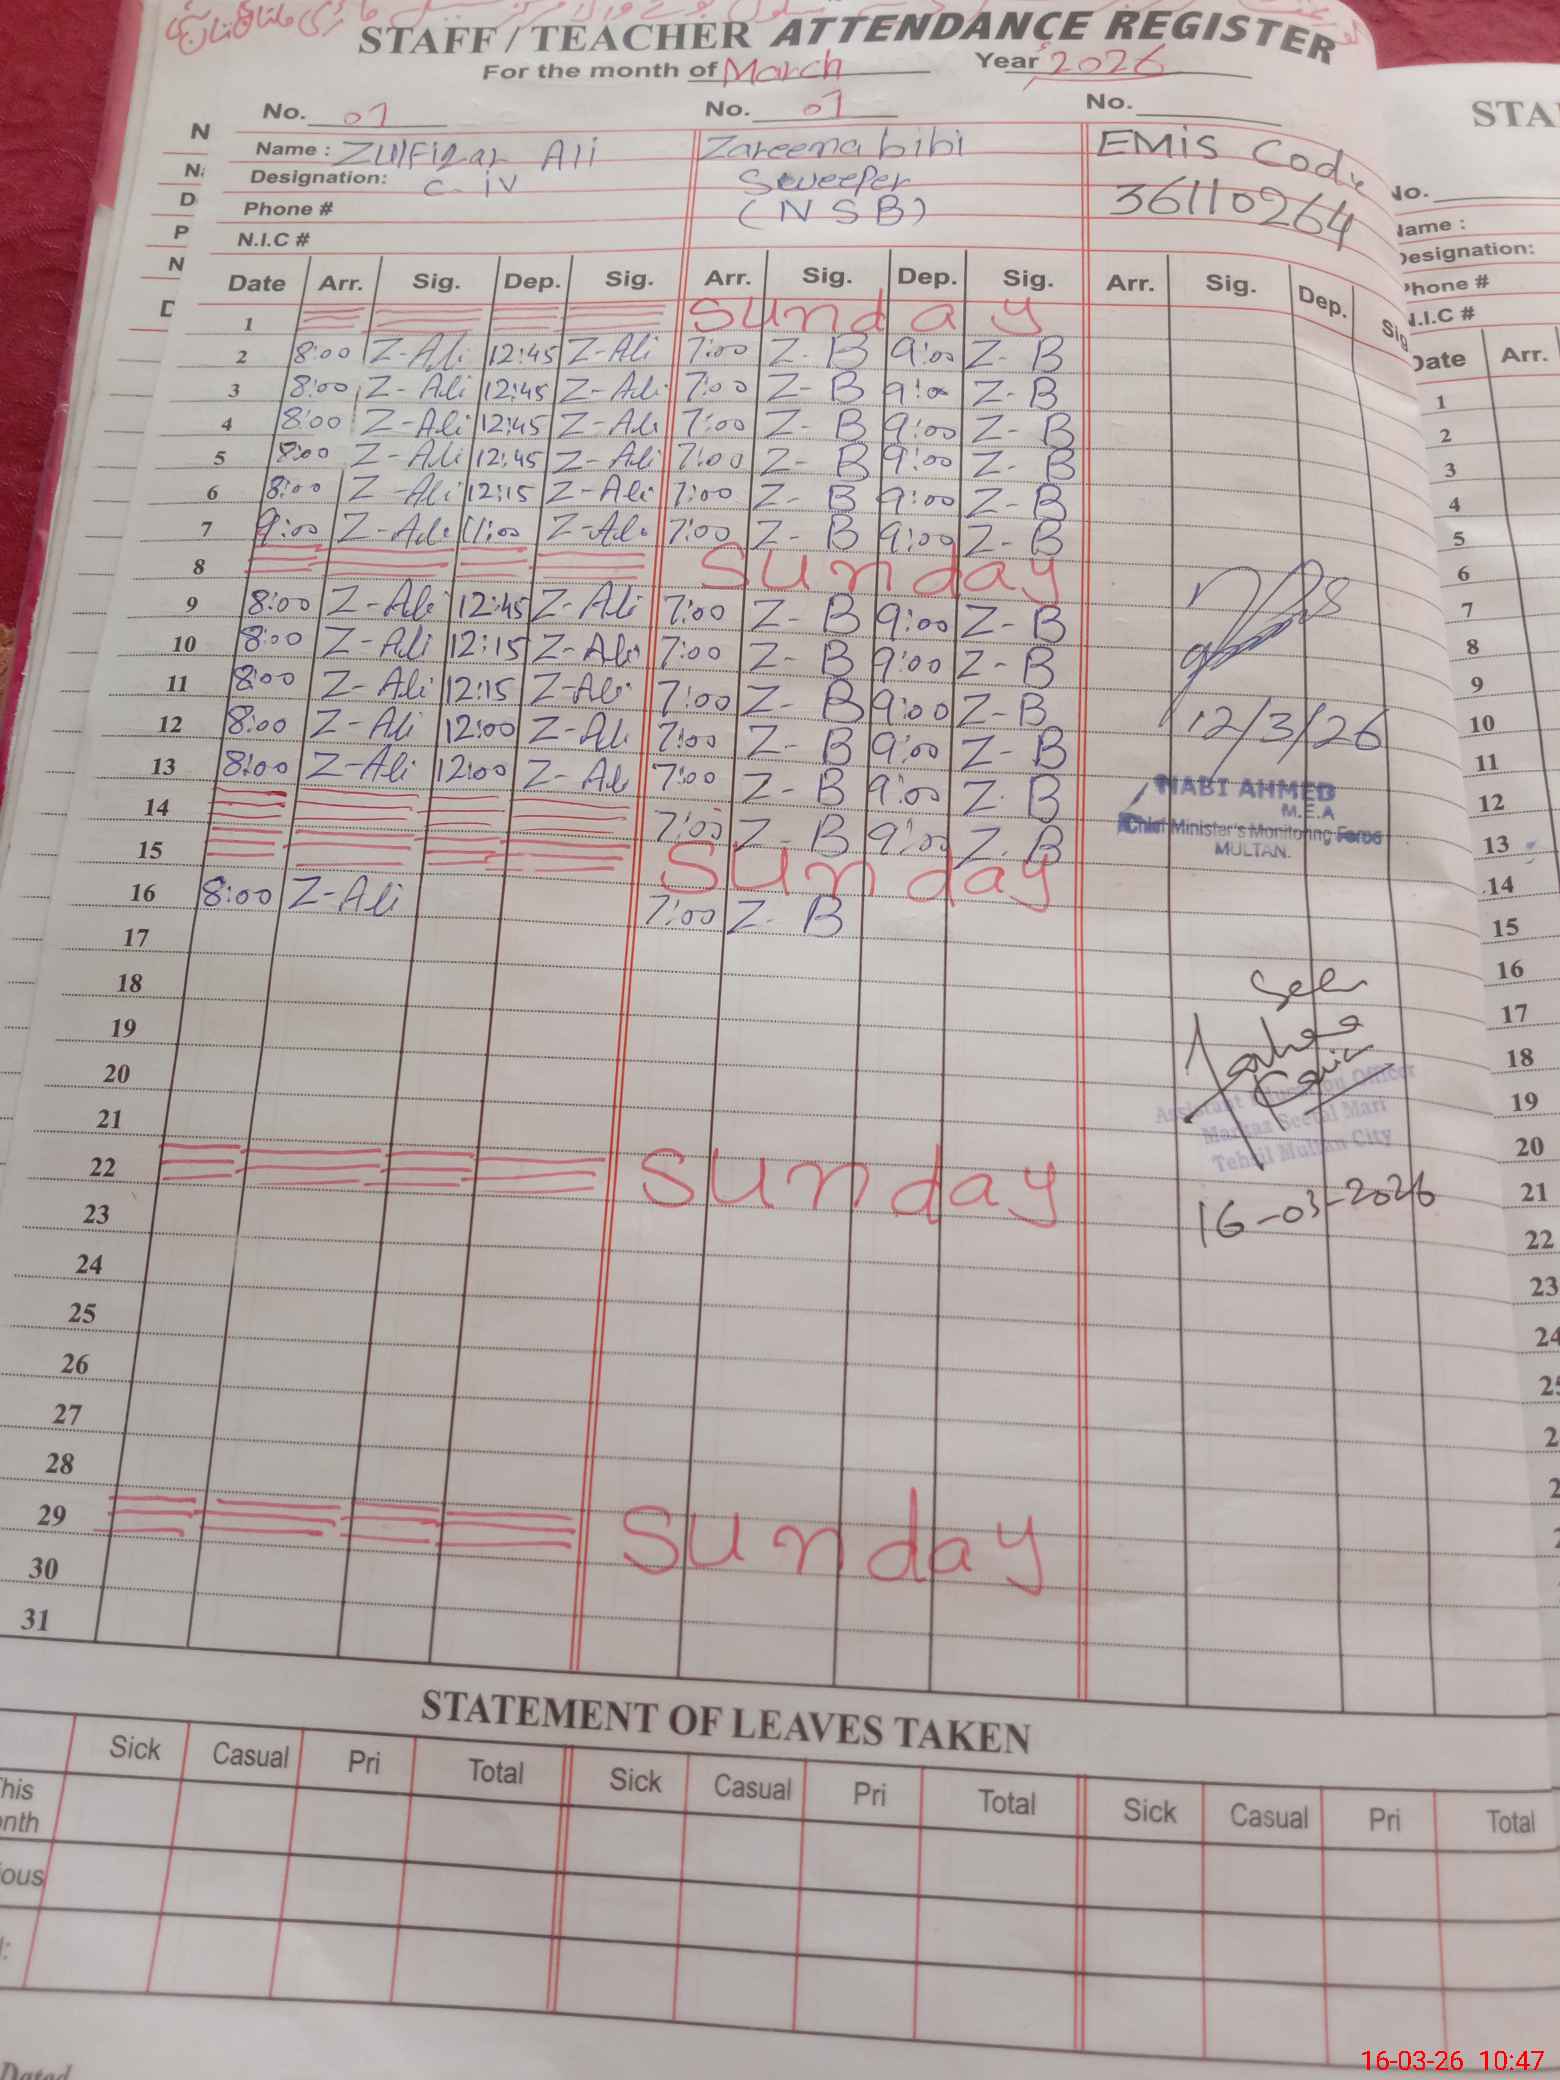 STAFF / TEACHER ATTENDANCE REGISTER
For the month of March Year 2026
No. 01 No. 01 No.
Name : Zulfiqar Ali Zareena bibi EMIS Code
Designation: C-iv Sweeper 36110264
Phone # (NSB)
N.I.C #
Date Arr. Sig. Dep. Sig. Arr. Sig. Dep. Sig. Arr. Sig. Dep. Sig
1 Sunday
2 8:00 Z-Ali 12:45 Z-Ali 7:00 Z-B 9:00 Z-B
3 8:00 Z-Ali 12:45 Z-Ali 7:00 Z-B 9:00 Z-B
4 8:00 Z-Ali 12:45 Z-Ali 7:00 Z-B 9:00 Z-B
5 8:00 Z-Ali 12:45 Z-Ali 7:00 Z-B 9:00 Z-B
6 8:00 Z-Ali 12:15 Z-Ali 7:00 Z-B 9:00 Z-B
7 9:00 Z-Ali 11:00 Z-Ali 7:00 Z-B 9:00 Z-B
8 Sunday
9 8:00 Z-Ali 12:45 Z-Ali 7:00 Z-B 9:00 Z-B
10 8:00 Z-Ali 12:15 Z-Ali 7:00 Z-B 9:00 Z-B
11 8:00 Z-Ali 12:15 Z-Ali 7:00 Z-B 9:00 Z-B
12 8:00 Z-Ali 12:00 Z-Ali 7:00 Z-B 9:00 Z-B
13 8:00 Z-Ali 12:00 Z-Ali 7:00 Z-B 9:00 Z-B
14 7:00 Z-B 9:00 Z-B
15 Sunday
16 8:00 Z-Ali 7:00 Z-B
17
18
19
20
21
22 Sunday
23
24
25
26
27
28
29 Sunday
30
31
12/3/26
NABI AHMED
M.E.A
Chief Minister's Monitoring Force
MULTAN.
Assistant Education Officer
Markaz Seetal Mari
Tehsil Multan City
16-03-2026
STATEMENT OF LEAVES TAKEN
Sick Casual Pri Total Sick Casual Pri Total Sick Casual Pri Total
his
nth
ious
Dated
STA
No.
Name :
Designation:
Phone #
N.I.C #
Date Arr.
1
2
3
4
5
6
7
8
9
10
11
12
13
14
15
16
17
18
19
20
21
22
23
24
16-03-26 10:47